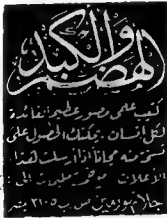 الهضم والكبد
كتيب علمي مصور عظيم الفائدة
لكل انسان. يمكنك الحصول على
نسخة منه مجانا اذا ارسلت هذا
الاعلان مع خمسة مليمات الى
ص ب ٢١٠٥ مصر